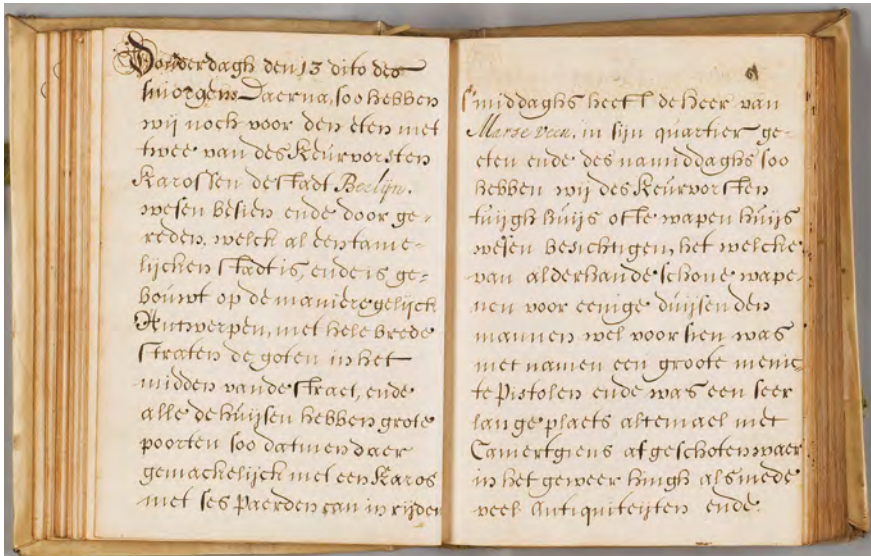 Donderdagh den 13 dito des
smorgens Daerna, soo hebben
wij noch voor den eten met
twee van des Keurvorsten
Karossen de stadt Berlijn.
wesen besien ende door ge-
reden, welck al een tame-
lijcken stadt is, ende is ge-
bouwt op de maniere gelijck
Antwerpen, met hele brede
straten de goten in het
midden vande straet, ende
alle de huijsen hebben grote
poorten soo datmen daer
gemackelijck met een Karos
met ses Paerden can in rijden
smiddaghs heeft de heer van
Marseveen, in sijn quartier ge-
eten ende des namiddaghs soo
hebben wij des Keurvorsten
tuijgh huijs ofte wapen huijs
wesen besichtigen, het welcke
van alderhande schone wape-
nen voor eenige duijsenden
mannen wel voorsien was
met namen een groote menic-
te Pistolen ende was een seer
lange plaets altemael met
Camertgiens afgeschoten waer
in het geweer hingh als mede
veel Antiquiteijten ende.